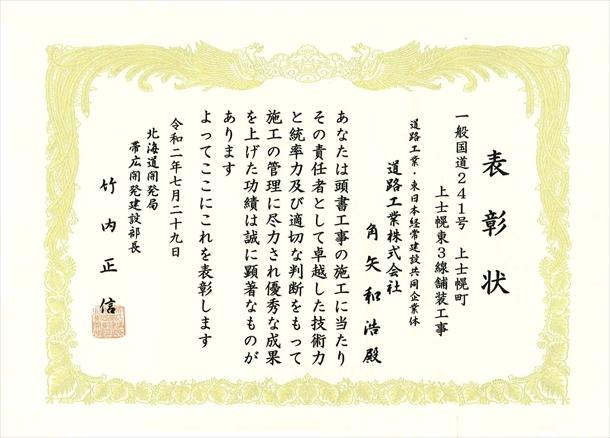 表彰状
一般国道241号 上士幌町
上士幌東3線舗装工事
道路工業・東日本経常建設共同企業体
道路工業株式会社
角矢和浩殿
あなたは頭書工事の施工に当たり
その責任者として卓越した技術力
と統率力及び適切な判断をもって
施工の管理に尽力され優秀な成果
を上げた功績は誠に顕著なものが
あります
よってここにこれを表彰します
令和二年七月二十九日
北海道開発局
帯広開発建設部長
竹内正信